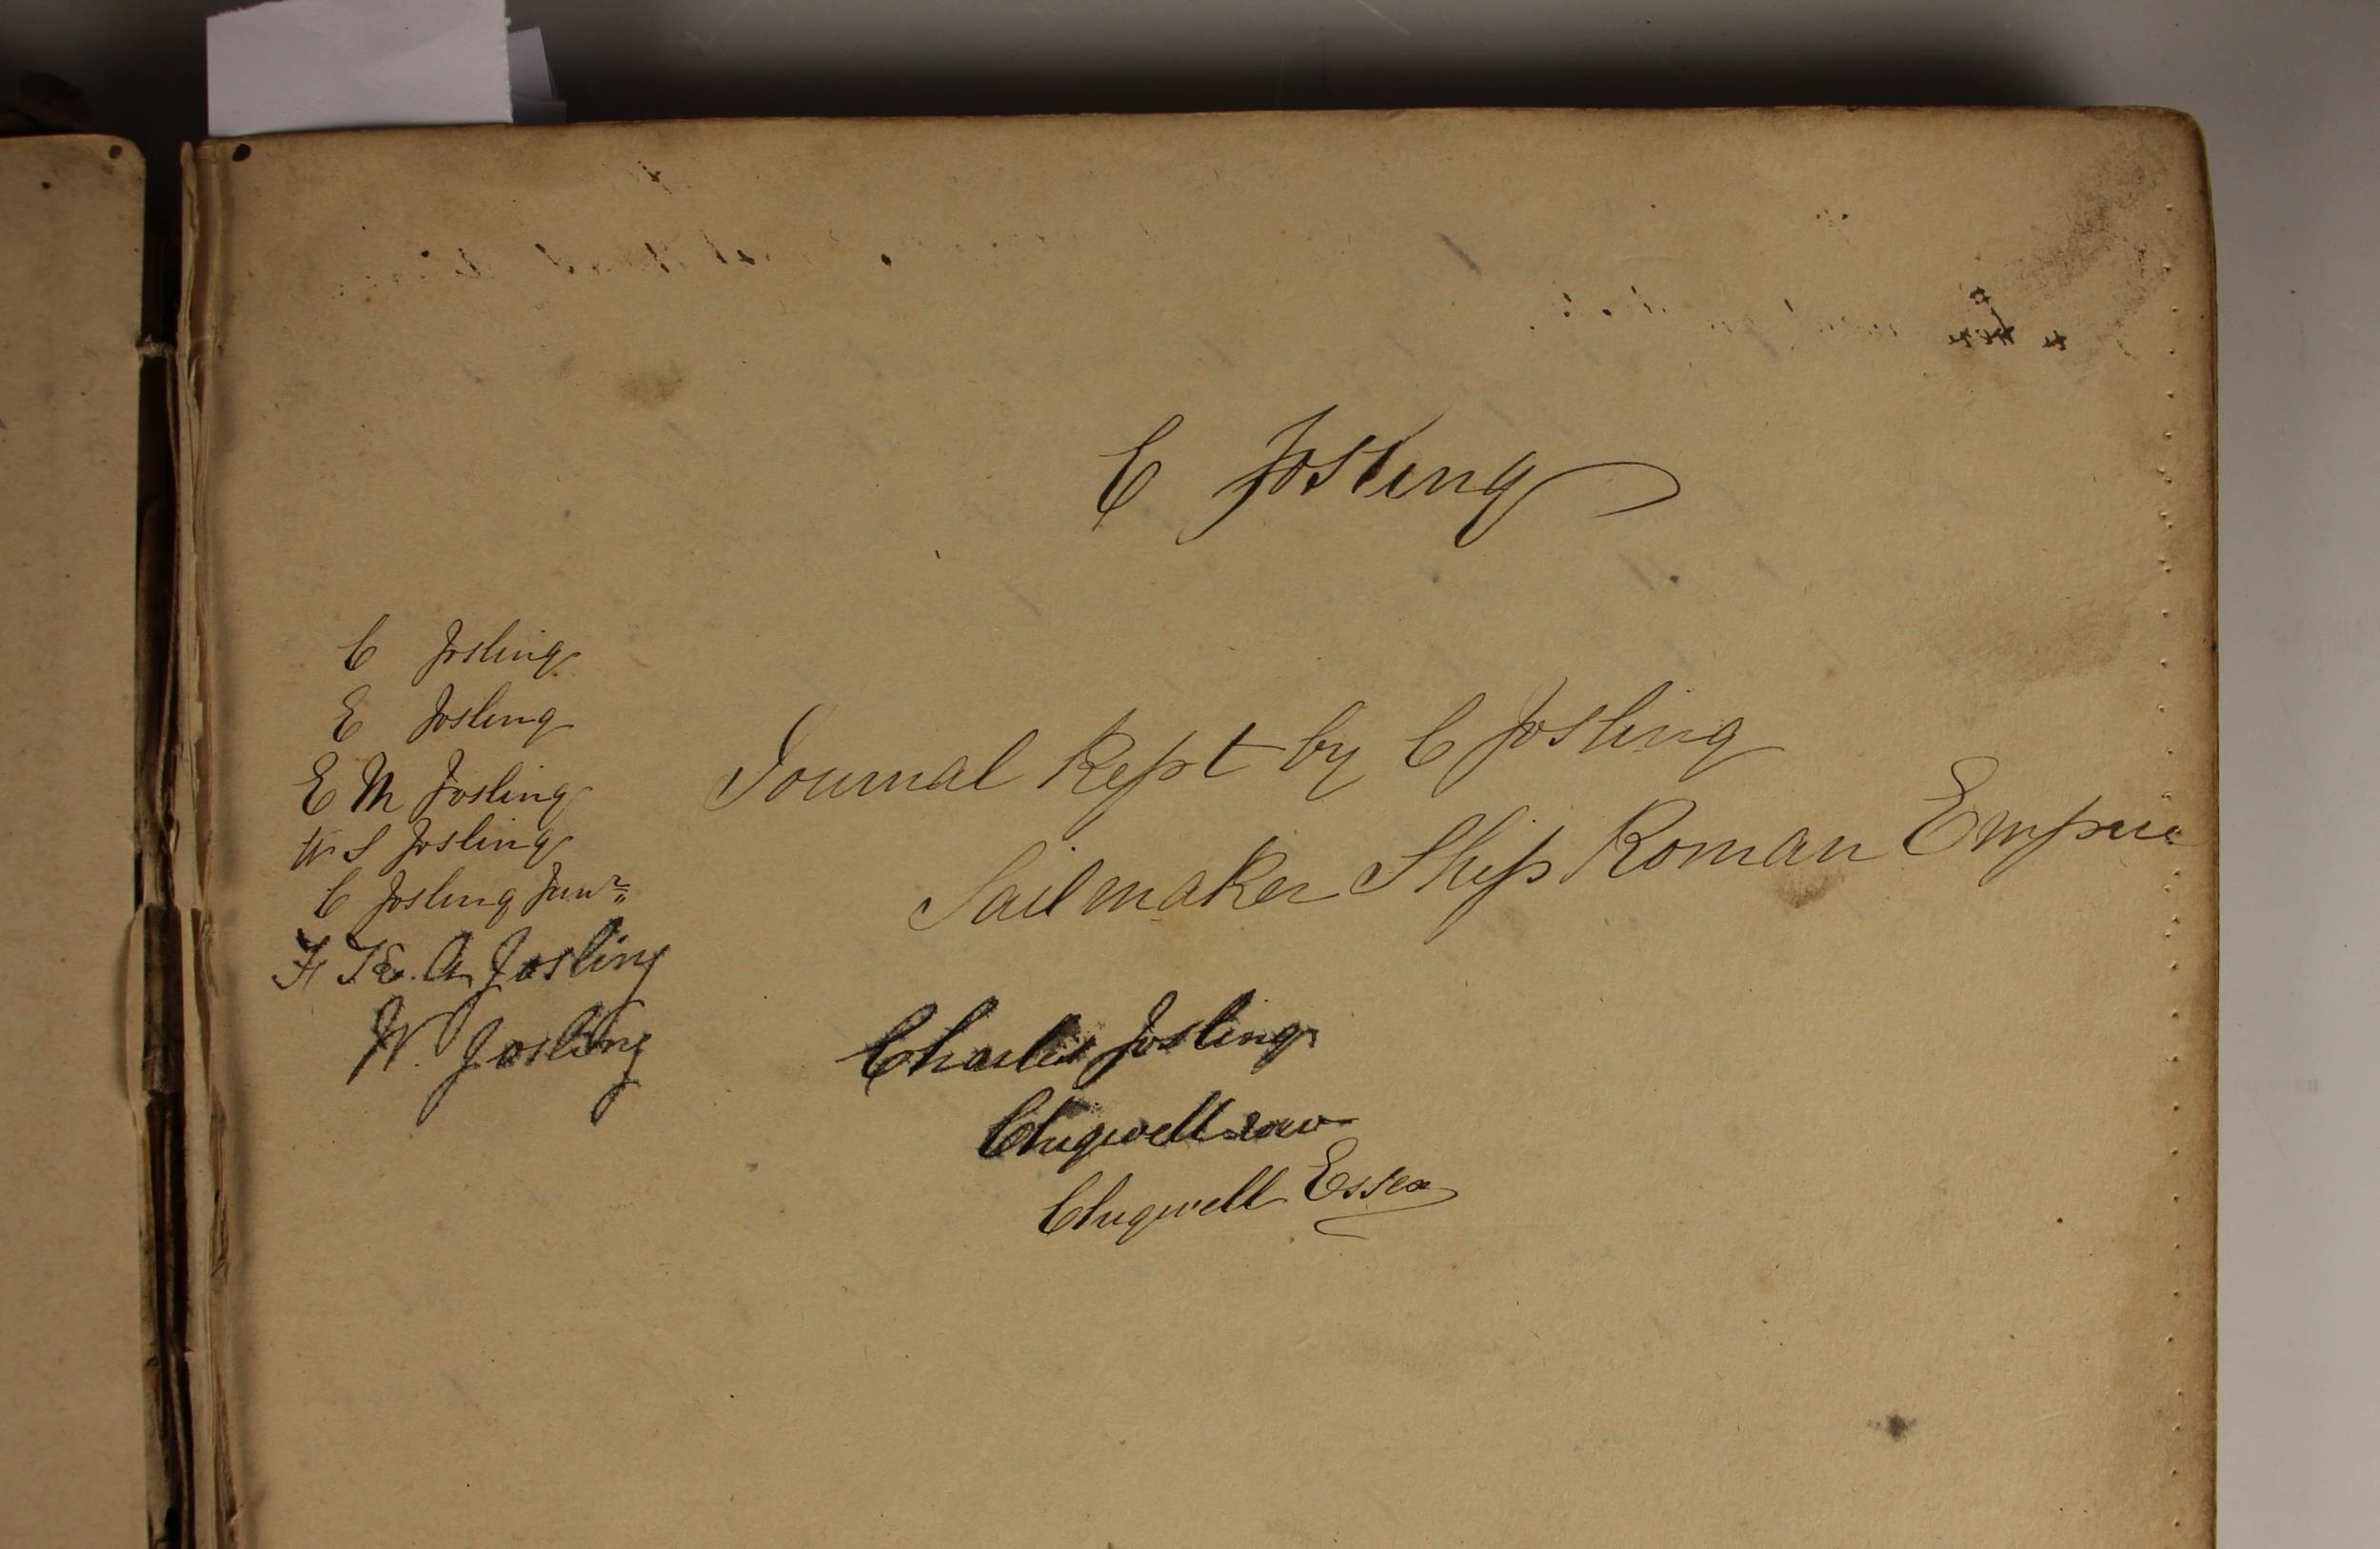 C Josling
C Josling
E Josling
E M Josling
W S Josling
C Josling Junr
F T E. A Josling
W. Josling
Journal Kept by C Josling
Sailmaker Ship Roman Empire
Charles Josling
Chigwell row
Chigwell Essex